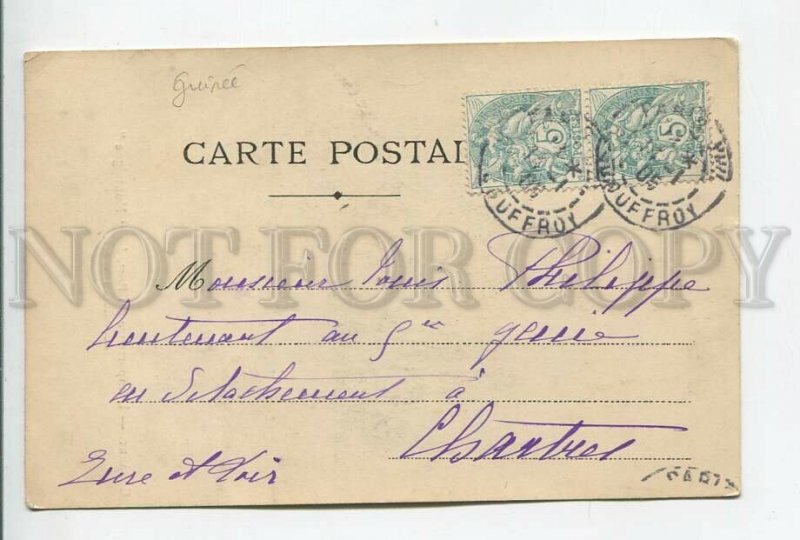 Guinée
CARTE POSTAL
5 5
PARIS
DUFFROY DUFFROY
NOT FOR COPY
Monsieur Louis Philippe
lieutenant au 5me génie
en détachement à
Chartres
Eure et Loir
PARI